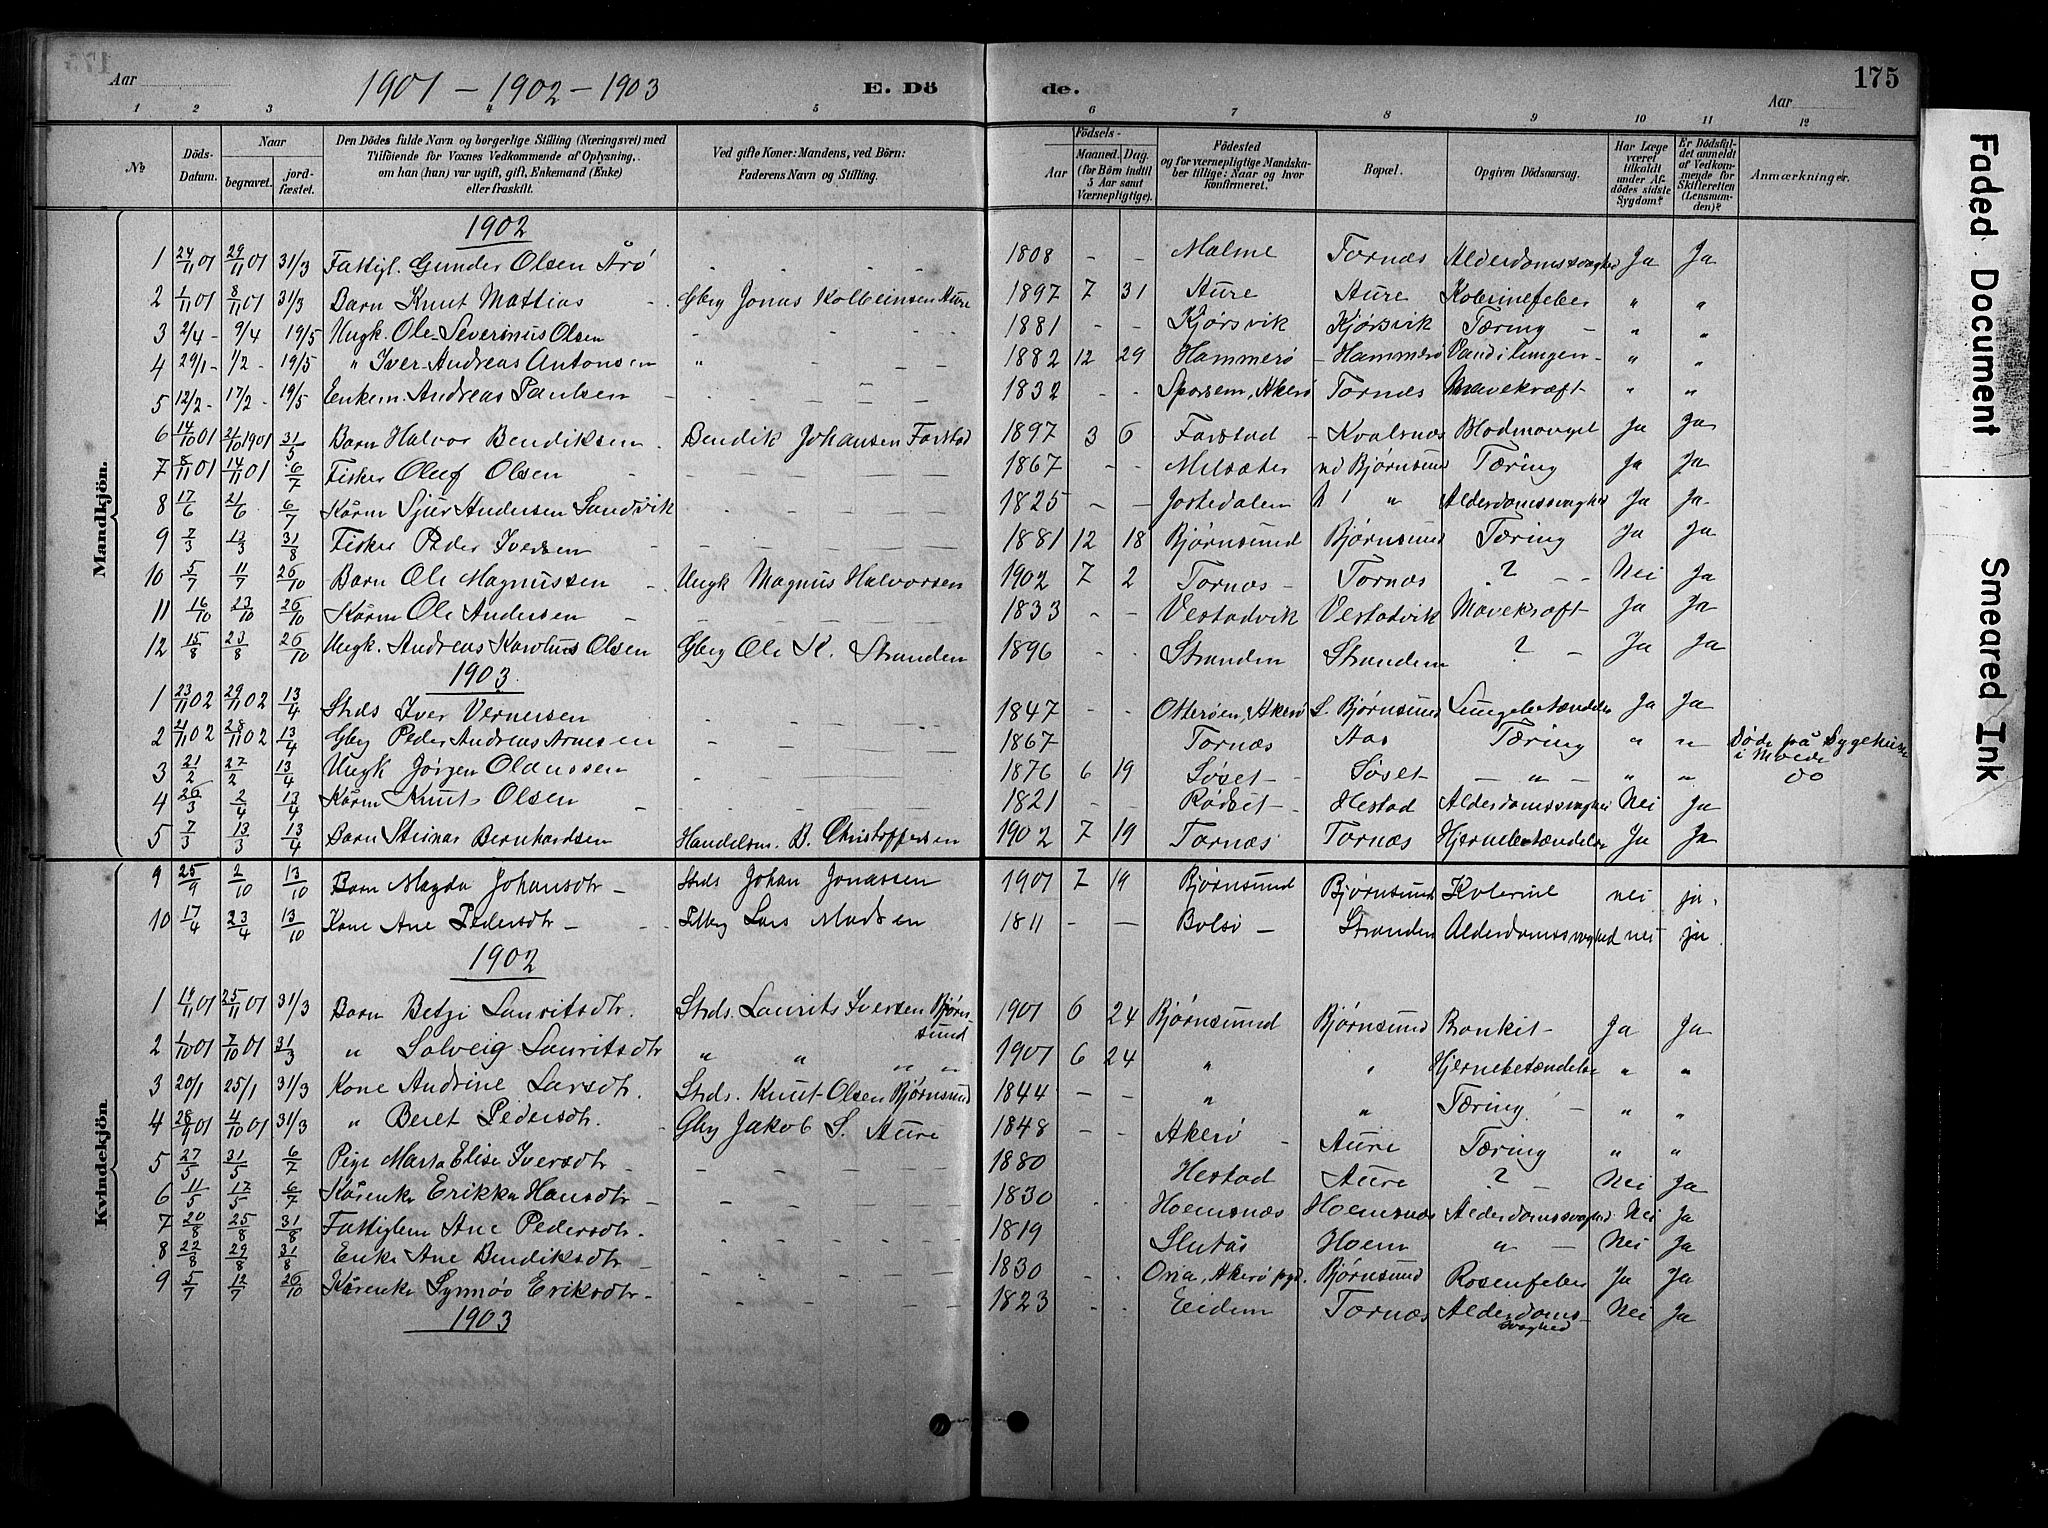 175
Aar 1901 - 1902 - 1903 E. Dö de. Aar
1 2 3 4 5 6 7 8 9 10 11 12
No Döds-Datum. Naar begravet. jordfæstet. Den Dödes fulde Navn og borgerlige Stilling (Næringsvei) med Tilföiende for Voxnes Vedkommende af Oplysning, om han (hun) var ugift, gift, Enkemand (Enke) eller fraskilt. Ved gifte Koner: Mandens, ved Börn: Faderens Navn og Stilling. Födsels- Aar Maaned. Dag. (for Börn indtil 5 Aar samt Værnepligtige). Födested og for værnepligtige Mandskaber tillige: Naar og hvor konfirmeret. Bopæl. Opgiven Dödsaarsag. Har Læge været tilkaldt under Afdödes sidste Sygdom? Er Dödsfaldet anmeldt af Vedkommende for Skifteretten (Lensmanden)? Anmærkninger.
Mandkjön.
1902
1 24/11 01 29/11 01 31/3 Fattigl. Gunder Olsen Årö 1808 - - Malme Tornæs Alderdomssvaghed Ja Ja
2 1/11 01 8/11 01 31/3 Barn Knut Mattias Gbrg Jonas Kolbeinsen Aure 1897 7 31 Aure Aure Kolerinefeber " "
3 2/4 - 9/4 19/5 Ungk. Ole Severinus Olsen 1881 - - Kjørsvik Kjørsvik Tæring - " "
4 29/1 - 1/2 - 19/5 " Iver Andreas Antonsen " 1882 12 29 Hammerø - Hammerø Vand i Lungen - " "
5 12/2 - 17/2 - 19/5 Enkem. Andreas Paulsen 1832 - - Sporsem, Akerø Tornæs Mavekræft " "
6 14/10 01 21/10 1901 31/5 Barn Halvor Bendiksen Bendik Johansen Farstad 1897 3 6 Farstad - Kvalsnæs Blodmangel Ja Ja
7 8/11 01 14/11 01 6/7 Fisker Oluf Olsen 1867 - - Melsæter nd Bjørnsund Tæring Ja Ja
8 17/6 21/6 6/7 Kårm Sjur Andersen Sandvik 1825 - - Jostedalen " Alderdomssvaghed Ja Ja
9 7/3 13/3 31/8 Fisker Peder Iversen 1881 12 18 Bjørnsund Bjørnsund Tæring Ja Ja
10 5/7 11/7 26/10 Barn Ole Magnussen Ungk Magnus Halvorsen 1902 7 2 Tornæs - Tornæs ? - - Nei Ja
11 16/10 23/10 26/10 Kårm Ole Andersen 1833 - - Vestadvik Vestadvik Mavekræft Ja Ja
12 15/8 23/8 26/10 Ungk. Andreas Karolius Olsen Gbrg Ole K. Stranden 1896 - - Stranden Stranden ? - Ja Ja
1903
1 23/11 02 29/11 02 13/4 Strds Iver Vernersen 1847 - - Otterøen, Akerø S. Bjørnsund Lungebetændelse Ja Ja
2 21/11 02 28/11 02 13/4 Gbrg Peder Andreas Arnesen 1867 Tornæs Aas Tæring " " Døde på Sygehuset i Molde
3 21/2 27/2 13/4 Ungk Jörgen Olaussen 1876 6 19 Søset - Søset - " - " " do
4 26/3 2/4 13/4 Kårm Knut Olsen 1821 - - Rødset - Hestad Alderdomssvaghed Nei Ja
5 7/3 13/3 13/4 Barn Steinar Bernhardsen Handelsm. B. Christoffersen 1902 7 19 Tornæs Tornæs Hjernebetændelse Ja Ja
Kvindekjön.
9 25/9 2/10 13/10 Barn Magda Johansdtr - Strds Johan Jonassen 1901 7 19 Bjørnsund Bjørnsund Kolerine nei ja.
10 17/4 23/4 13/10 Kone Ane Pedersdtr - Lars Madsen 1811 - - Bolsø - Stranden Alderdomssvaghed nei ja
1902
1 19/11 01 25/11 01 31/3 Barn Betzi Lauritsdtr. Strds. Laurits Iversen Bjørnsund 1901 6 24 Bjørnsund Bjørnsund Bronkit - Ja Ja
2 1/10 01 7/10 01 31/3 " Solveig Lauritsdtr " " " " 1901 6 24 " " Hjernebetændelse " "
3 20/1 25/1 31/3 Kone Andrine Larsdtr. Strds. Knut Olsen Bjørnsund 1844 - - " " Tæring - " "
4 28/9 01 4/10 01 31/3 " Beret Pedersdtr. Gbrg Jakob S. Aure 1848 - - Akerø - Aure Tæring " "
5 27/5 31/5 6/7 Pige Marta Elise Iversdtr 1880 Hestad Aure ? - Nei Ja
6 11/5 17/5 6/7 Kårenke Erikka Hansdtr 1830 - - Hoemsnæs Hoemsnæs Alderdomssvaghed Nei Ja
7 20/8 25/8 31/8 Fattiglem Ane Pedersdtr. 1819 Slutås Hoem " - Nei Ja
8 22/8 29/8 31/8 Enke Ane Bendiksdtr 1830 - - Oria, Akerø pgd. Bjørnsund Rosenfeber Ja Ja
9 5/7 12/7 26/10 Kårenke Synnöo Eriksdtr 1823 - - Eidem Tornæs Alderdomssvaghed Nei Ja
1903
Faded Document
Smeared Ink